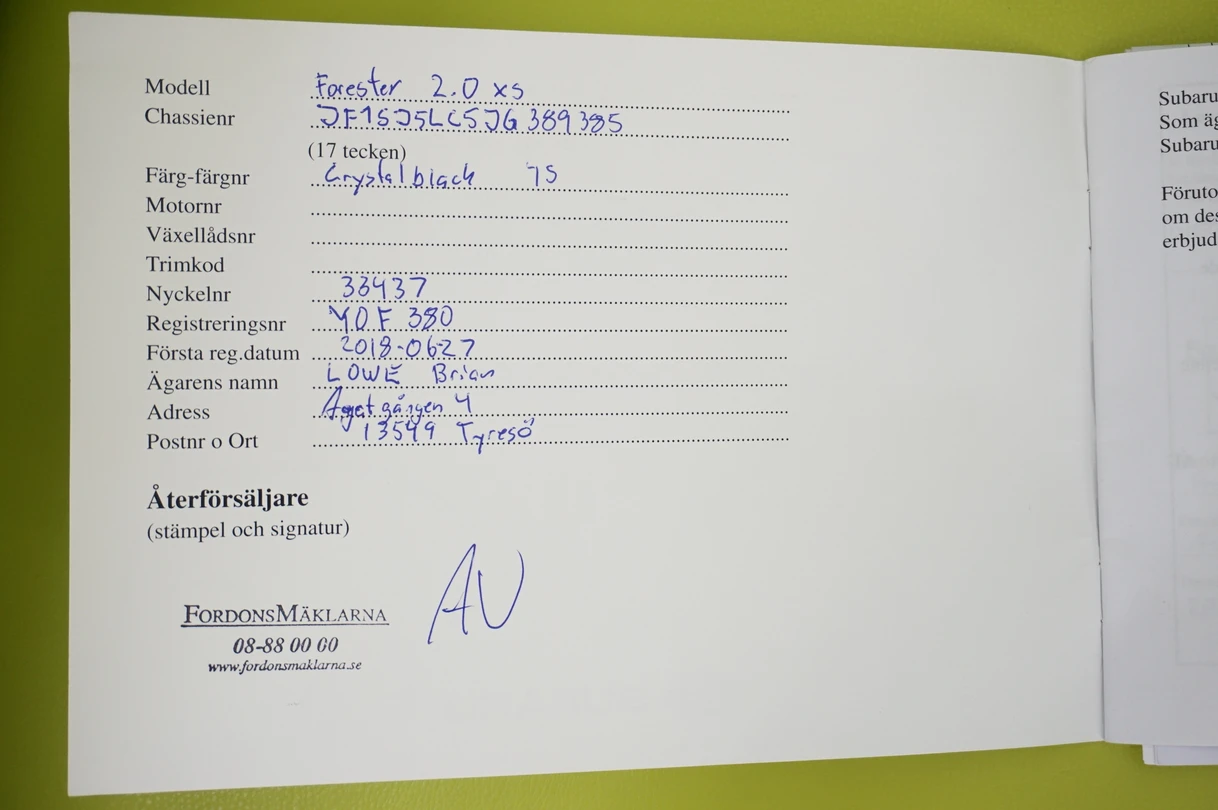 Modell Forester 2.0 XS
Chassienr JF1SJ5LC5JG389385
(17 tecken)
Färg-färgnr Crystalblack
Motornr
Växellådsnr
Trimkod
Nyckelnr 33437
Registreringsnr YOF 380
Första reg.datum 2018-06-27
Ägarens namn LOWE Brian
Adress Agatgången 4
Postnr o Ort 13549 Tyresö
Återförsäljare
(stämpel och signatur)
AV
FORDONSMÄKLARNA
08-88 00 60
www.fordonsmaklarna.se
Subaru
Som äg
Subaru
Föruto
om des
erbjud